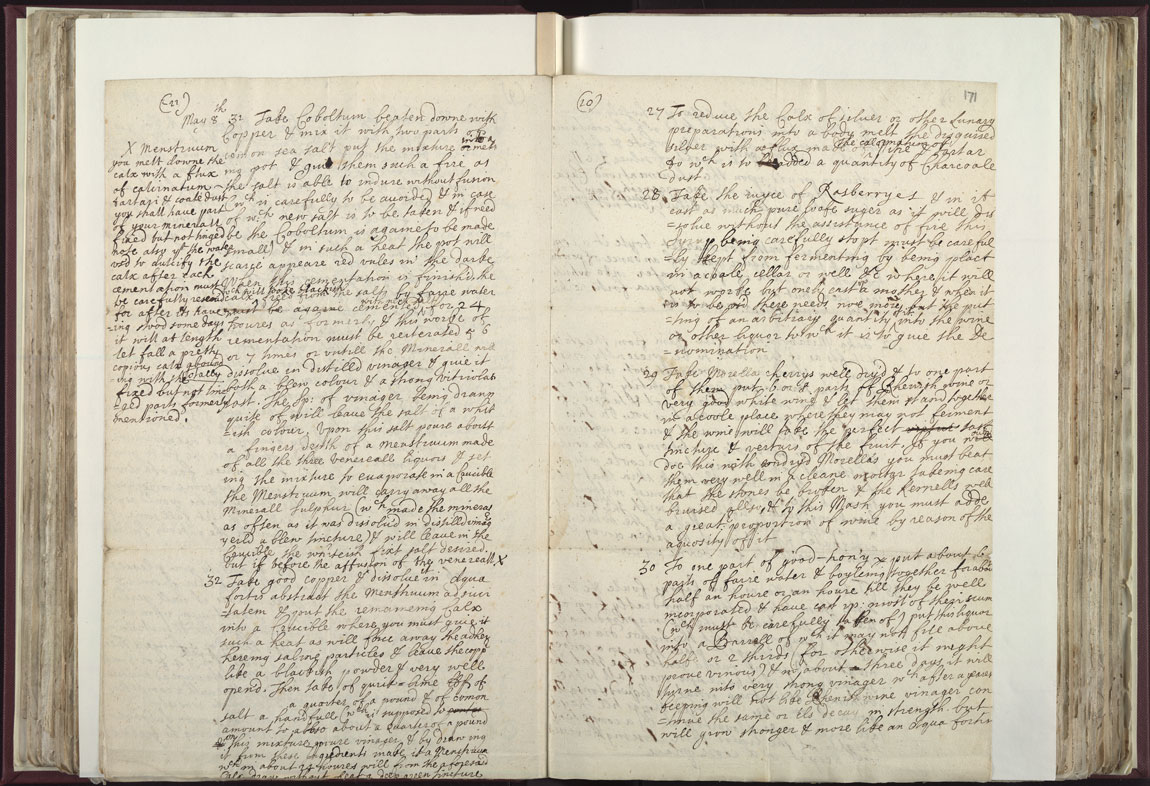 (11)
May 8th 31 Take Coboltum beaten downe with
Copper & mix it with two parts
common sea salt put the mixture into a melt
ing pot & give them such a fire as
the salt is able to indure without fusion
wch is carefully to be avoided & in case
of wch new salt is to be taken & if need
be the Coboltum is againe to be made
small & in such a heat the pot will
scarce appeare red unles in the darke
When this cementation is finishd the
calx freed from the salts by faire water
must be againe cemented for 24
houres as formerly & this worke of
cementation must be reiterated 5 6
or 7 times or untill the Minerall will
dissolve in distilled vinager & give it
both a blew colour & a strong vitriolat
tast. The sp: of vinager being drawn
quite of will leave the salt of a whit
ish colour, Upon this salt poure about
a fingers depth of a Menstruum made
of all the three venereall liquors & set
ing the mixture to evaporate in a Crucible
the Menstruum will carry away all the
Minerall sulphur (wch made the mineral
as often as it was dissolud in distilled vinag
yeild a blew tincture) & will leave in the
Crucible the whiteish fixt salt desired.
but if before the affusion of the venereall X
X Menstruum
you melt downe the
calx with a flux
of calcinatum
tartari & coale dust
you shall have part
of your minerals
fixed but not tinged
note also yt the water
used to dulcify the
calx after each
cementation must
be carefully reserved
for after its have
ing stood some days
it will at length
let fall a pretty
copious calx abound
ing with the totally
fixed but not tinc
red parts formerly
mentioned.
32 Take good copper & dissolve in Aqua
fortis abstract the Menstruum ad sicci
tatem & put the remaining Calx
into a Crucible where you must give it
such a heat as will force away the adhe
hereing saline particles & leave the copp
like a blackish powder & very well
opend. Then take of quick-lime
a quarter of a pound & of comon
salt a handfull (wch is supposed to
amount to also about a quarter of a pound
this mixture poure vinager & by drawing
it from these ingredients make it a Menstruu
wch in about 24 houres will from the aforesaid
Calx draw without heat a deep green tincture
(10)
171
27 To reduce the Calx of silver or other Lunary
preparations into a body melt the disguised
silver with a flux made of the calcination of Tartar
to wch is to be added a quantity of Charcoale
dust
28 Take the iuyce of Rasberryes & in it
cast as much pure loafe suger as it will dis
=solve without the assistance of fire this
syrup being carefully stopt must be careful
=ly kept from fermenting by being plact
in a coole, cellar or well &c where it will
not worke but onely cast a mother & when it
is to be usd there needs noe more but the put
=ting of an arbitrary quantity into the wine
or other liquor to wch it is to give the De
=nomination
29 Take Morella cherrys well dry'd & to one part
of them put 6 or 8 parts of Rhenish wine or
very good white wine & let them stand together
in a coole place where they may not ferment
& the wine will take the perfect tast
tincture & vertues of the fruit. If you will
doe this with undryd Morellas you must beat
them very well in a cleane mortar takeing care
that the stones be broken & the kernells well
brused also, & to this Mash you must adde
a great proportion of wine by reason of the
aquosity of it
30 To one part of good-hony put about 6
parts of faire water & boyleing together for about
half an houre or an houre till they be well
incorporated & have cast up: most of their scum
(wch must be carefully taken of) put this liquor
into a Barrell of wch it may not fill above
half or 2 thirds (for otherwise it might
prove vinous) & in about three days it will
turne into very strong vinager wch after a years
keeping will not like Rhenish wine vinager con
=tinue the same or els decay in strength but
will grow stronger & more like an Aqua fortis